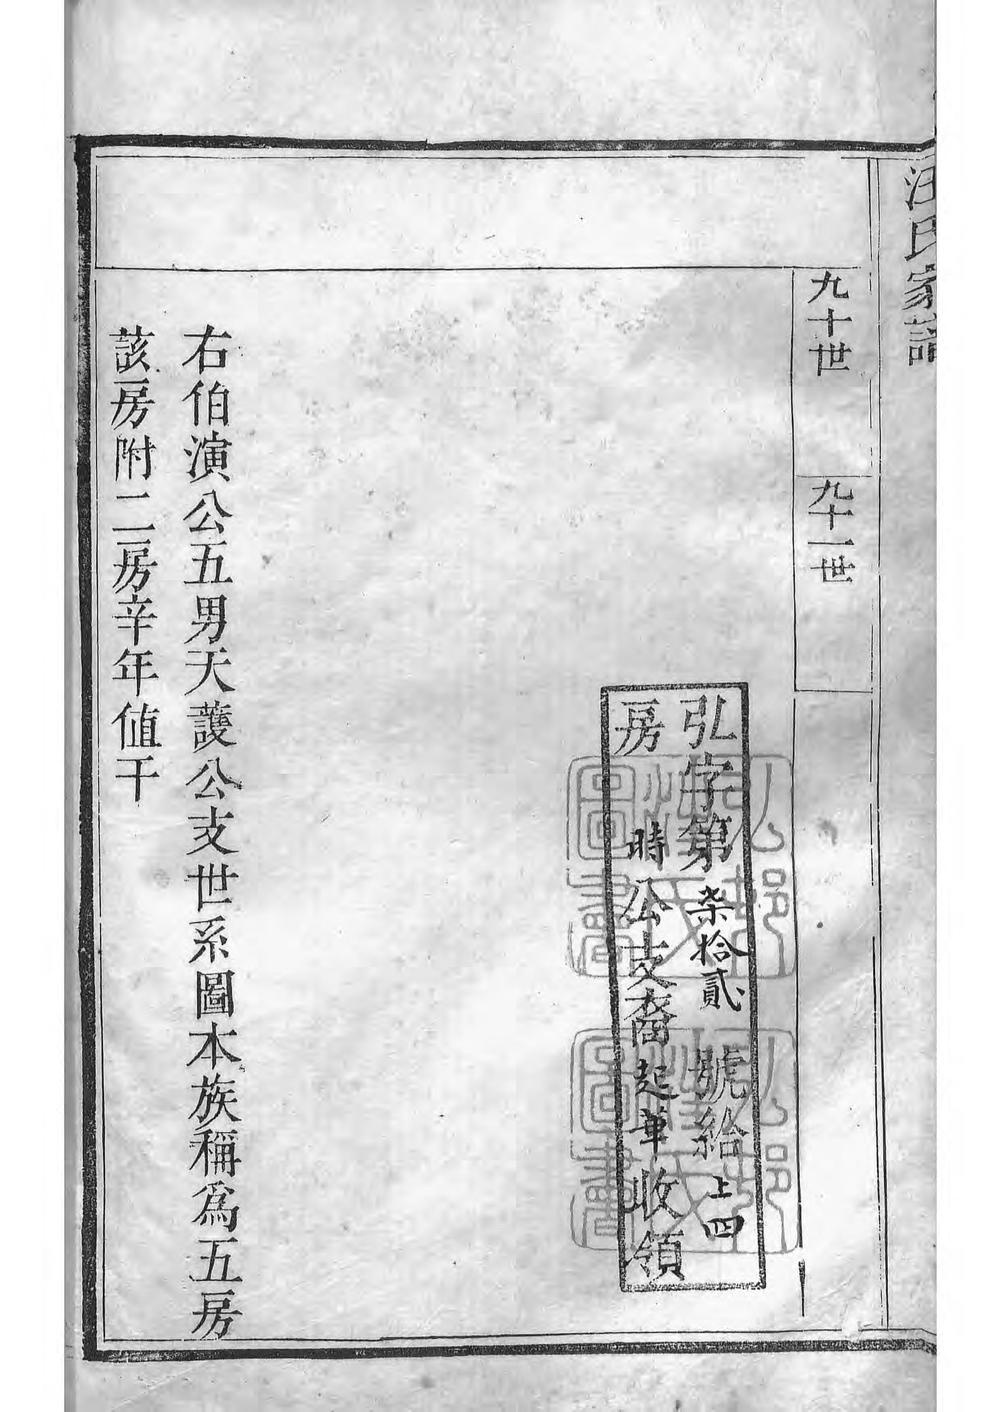 汪氏家譜
九十世
九十一世
弘字第柒拾貳號給上四
房時公支裔起華收領
弘邨
汪氏
圖書
弘邨
汪氏
圖書
右伯演公五男天護公支世系圖本族稱爲五房
該房附二房辛年值干